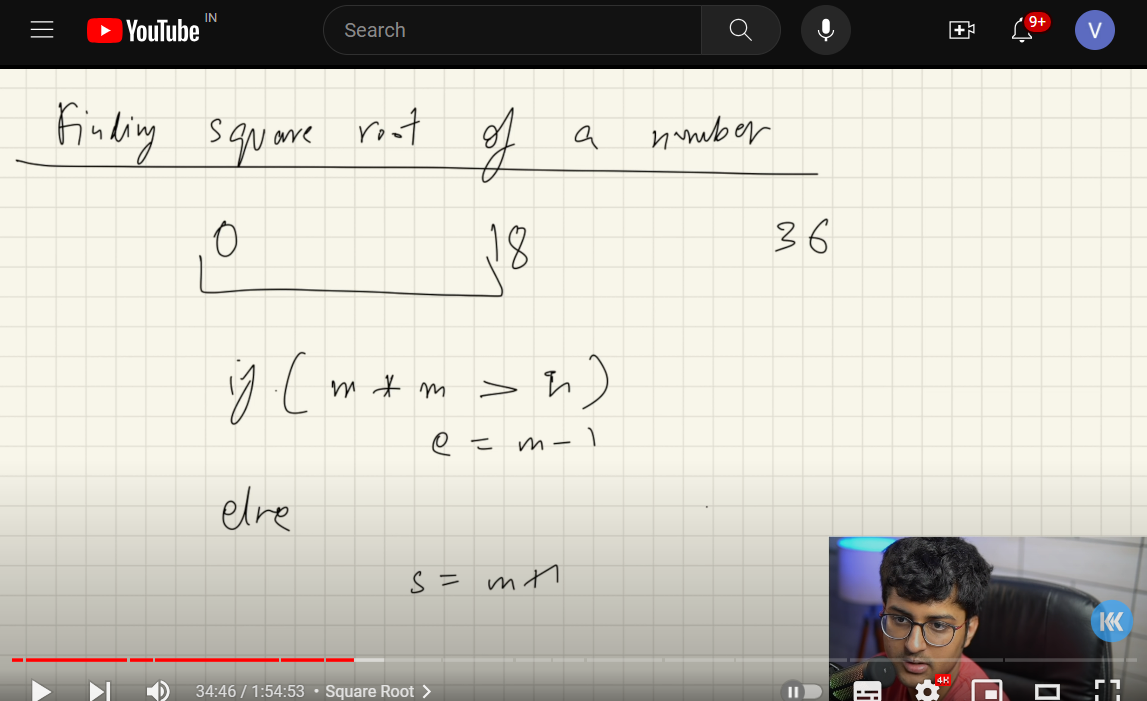 YouTube IN
Search
9+
V
Finding square root of a number
0 18 36
if (m * m > n)
e = m - 1
else
s = m + 1
KK
34:46 / 1:54:53 • Square Root >
4K